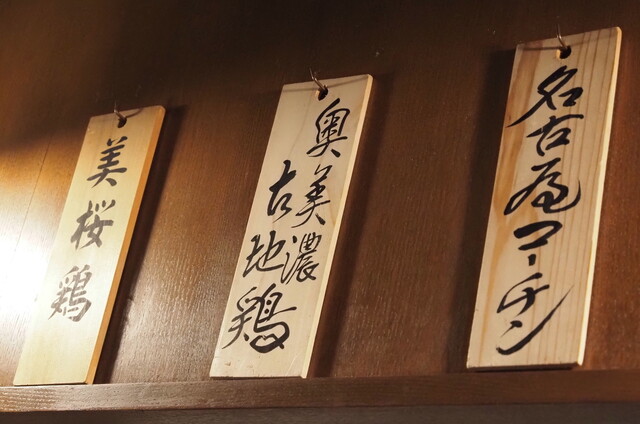 名古屋コーチン
奥美濃
古地鶏
美桜鶏